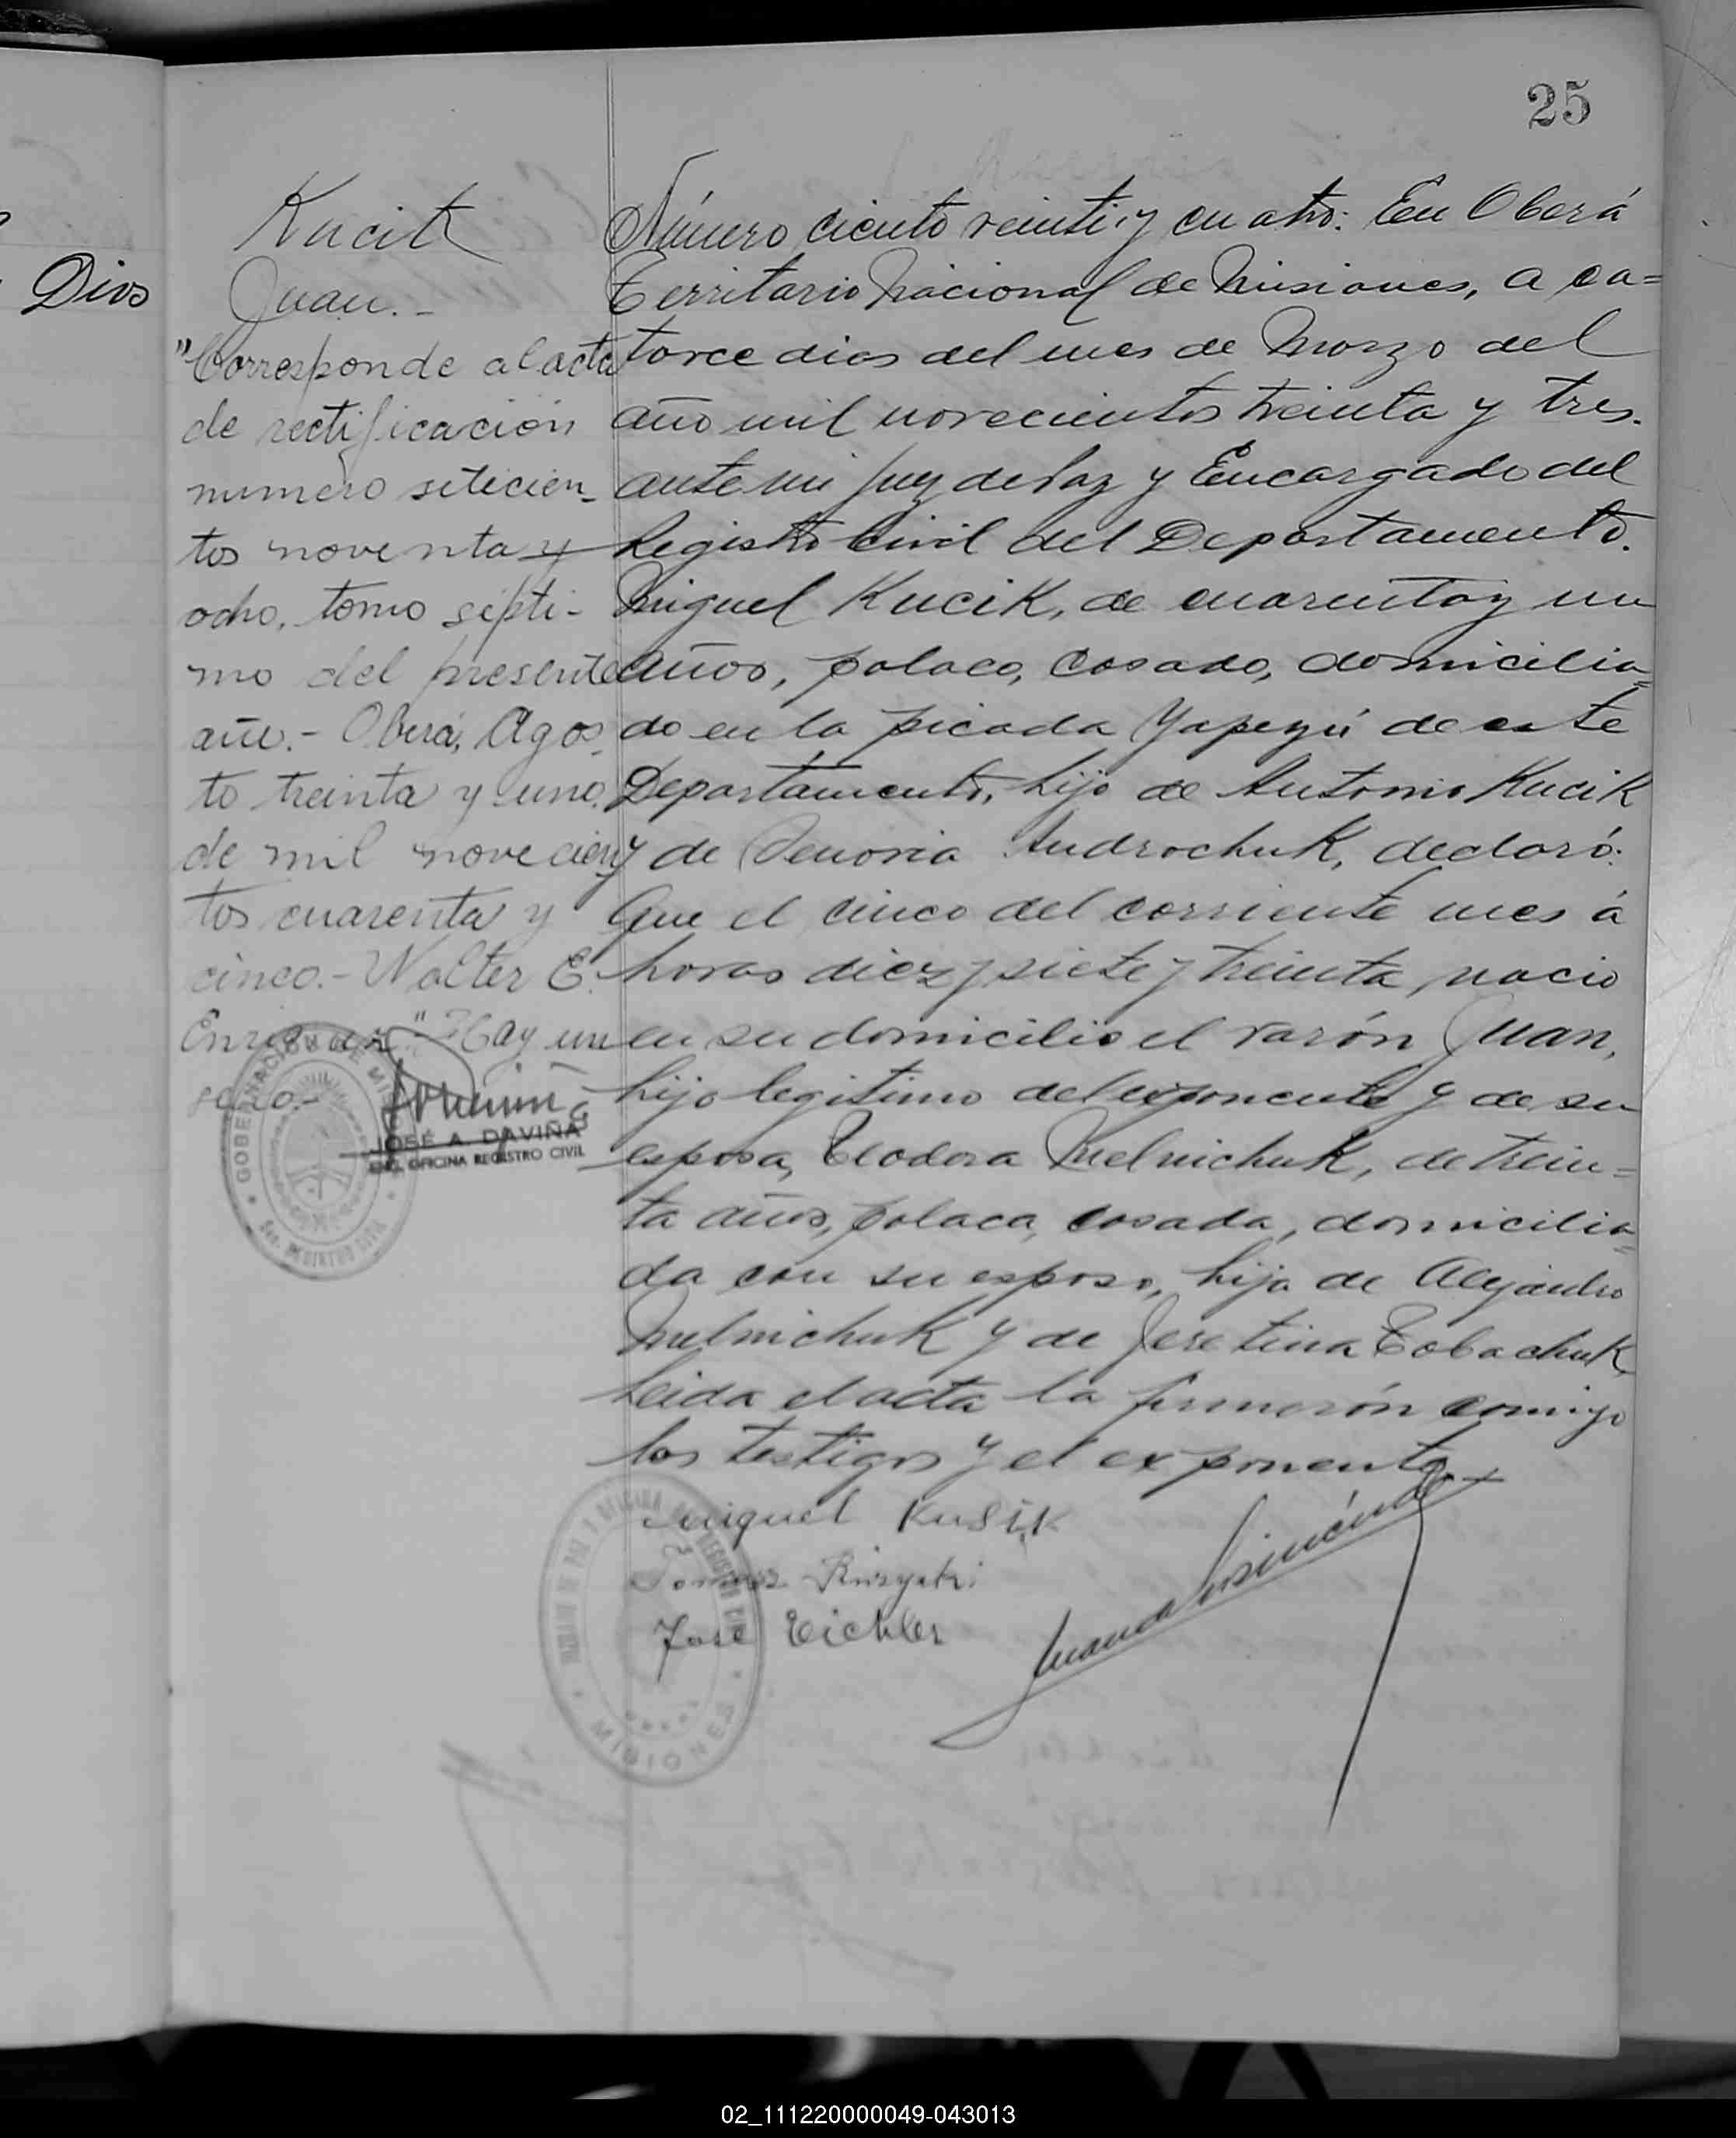 25
Dios
Kucik
Juan.-
"Corresponde al acta
de rectificación
numero setecien-
tos noventa y
ocho, tomo sépti-
mo del presente
año.- Oberá, Agos
to treinta y uno
de mil novecien
tos cuarenta y
cinco.- Walter E.
Hay un
sello.-
GOBERNACIÓN DE MISIONES
JOSÉ A. DAVIÑA
ENC. OFICINA REGISTRO CIVIL
Número ciento veinti y cuatro: En Oberá
Territorio Nacional de Misiones, a ca=
torce dias del mes de Marzo del
año mil novecientos treinta y tres.
ante mi Juez de Paz y Encargado del
Registro Civil del Departamento.
Miguel Kucik, de cuarenta y un
años, polaco, casado, domicilia=
do en la picada Yapeyú de este
Departamento, hijo de Antonio Kucik
y de Androchuk, declaró:
Que el cinco del corriente mes á
horas diez y siete y treinta, nacio
en su domicilio el varón Juan,
hijo legitimo del exponente y de su
esposa, Teodora Melnichuk, de trein=
ta años, polaca, casada, domicilia=
da con su esposo, hija de Alejandro
Melnichuk y de Tobachuk
Leida el acta la firmarón comigo
los testigos y el exponente.
Miguel Kusik
José Eichler
MISIONES
02_111220000049-043013